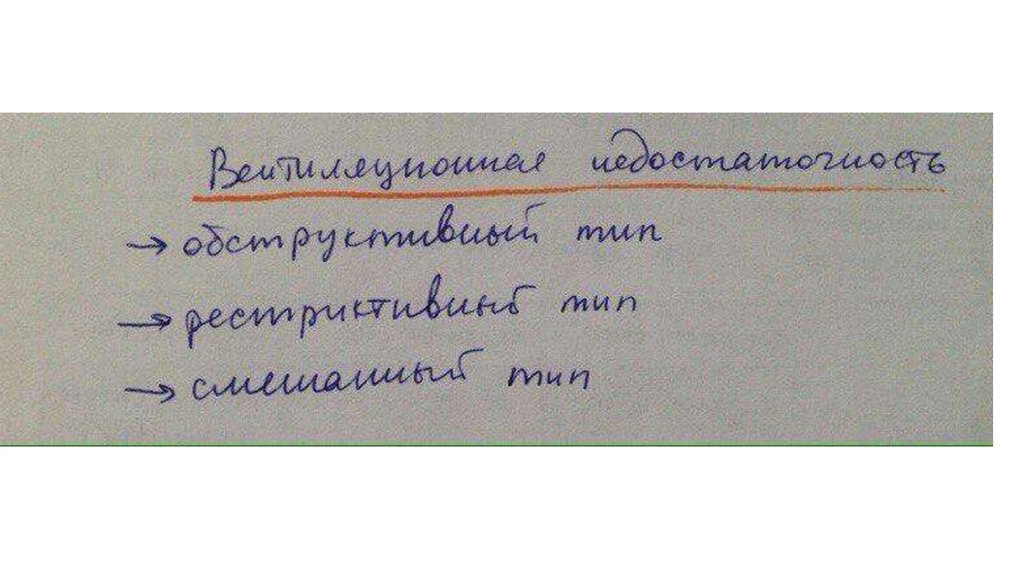 Вентиляционная недостаточность
→ обструктивный тип
→ рестриктивный тип
→ смешанный тип